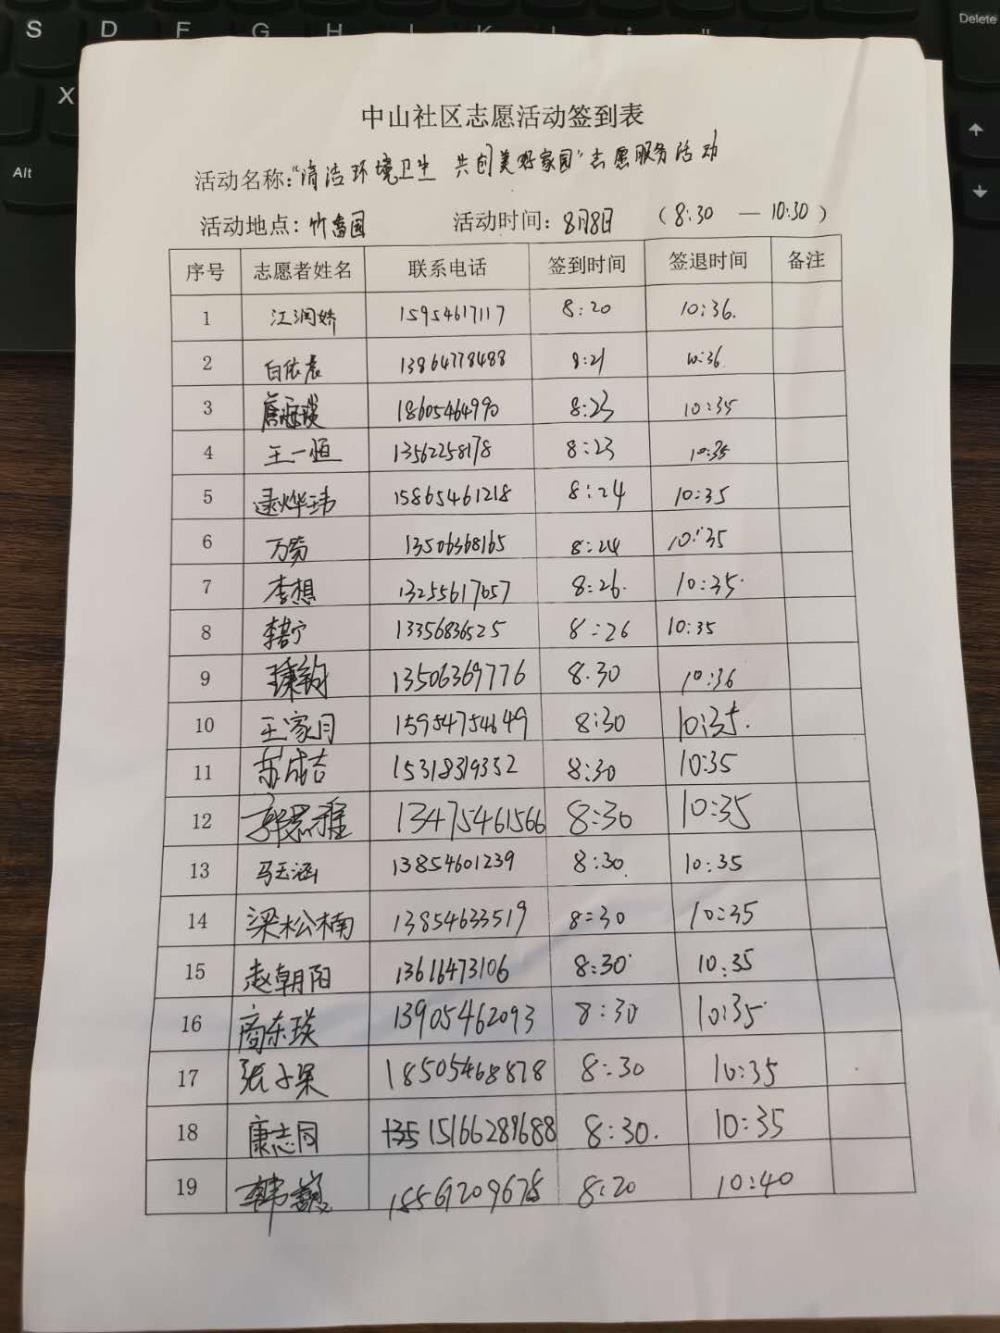 S D F G H J K L ; "
Delete
X
Alt
中山社区志愿活动签到表
活动名称:"清洁环境卫生 共创美好家园"志愿服务活动
活动地点: 竹香园 活动时间: 8月8日 (8:30 — 10:30)
序号 志愿者姓名 联系电话 签到时间 签退时间 备注
1 江润娇 15954617117 8:20 10:36.
2 白依宸 13864778488 8:21 10:36
3 18605464990 8:23 10:35
4 王一恒 13562258178 8:23 10:35
5 逯烨玮 15865461218 8:24 10:35
6 13506368165 8:24 10:35
7 李想 13255617657 8:26. 10:35.
8 13356836525 8:26 10:35
9 13506369776 8:30 10:36
10 王家月 15954754649 8:30 10:35.
11 苏成吉 15318319352 8:30 10:35
12 郭恩雅 13475461566 8:30 10:35
13 马玉涵 13854601239 8:30 10:35
14 梁松楠 13854633519 8:30 10:35
15 赵朝阳 13616473106 8:30 10:35
16 商东瑛 13905462093 8:30 10:35
17 张子杲 18505468878 8:30 10:35
18 康志同 15166289688 8:30. 10:35
19 韩巍 8:20 10:40